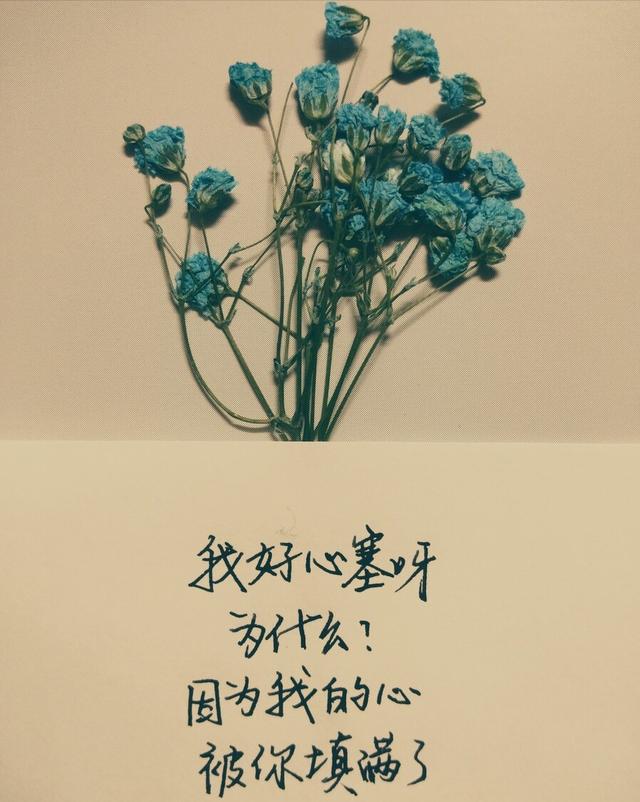 我好心塞呀
为什么?
因为我的心
被你填满了